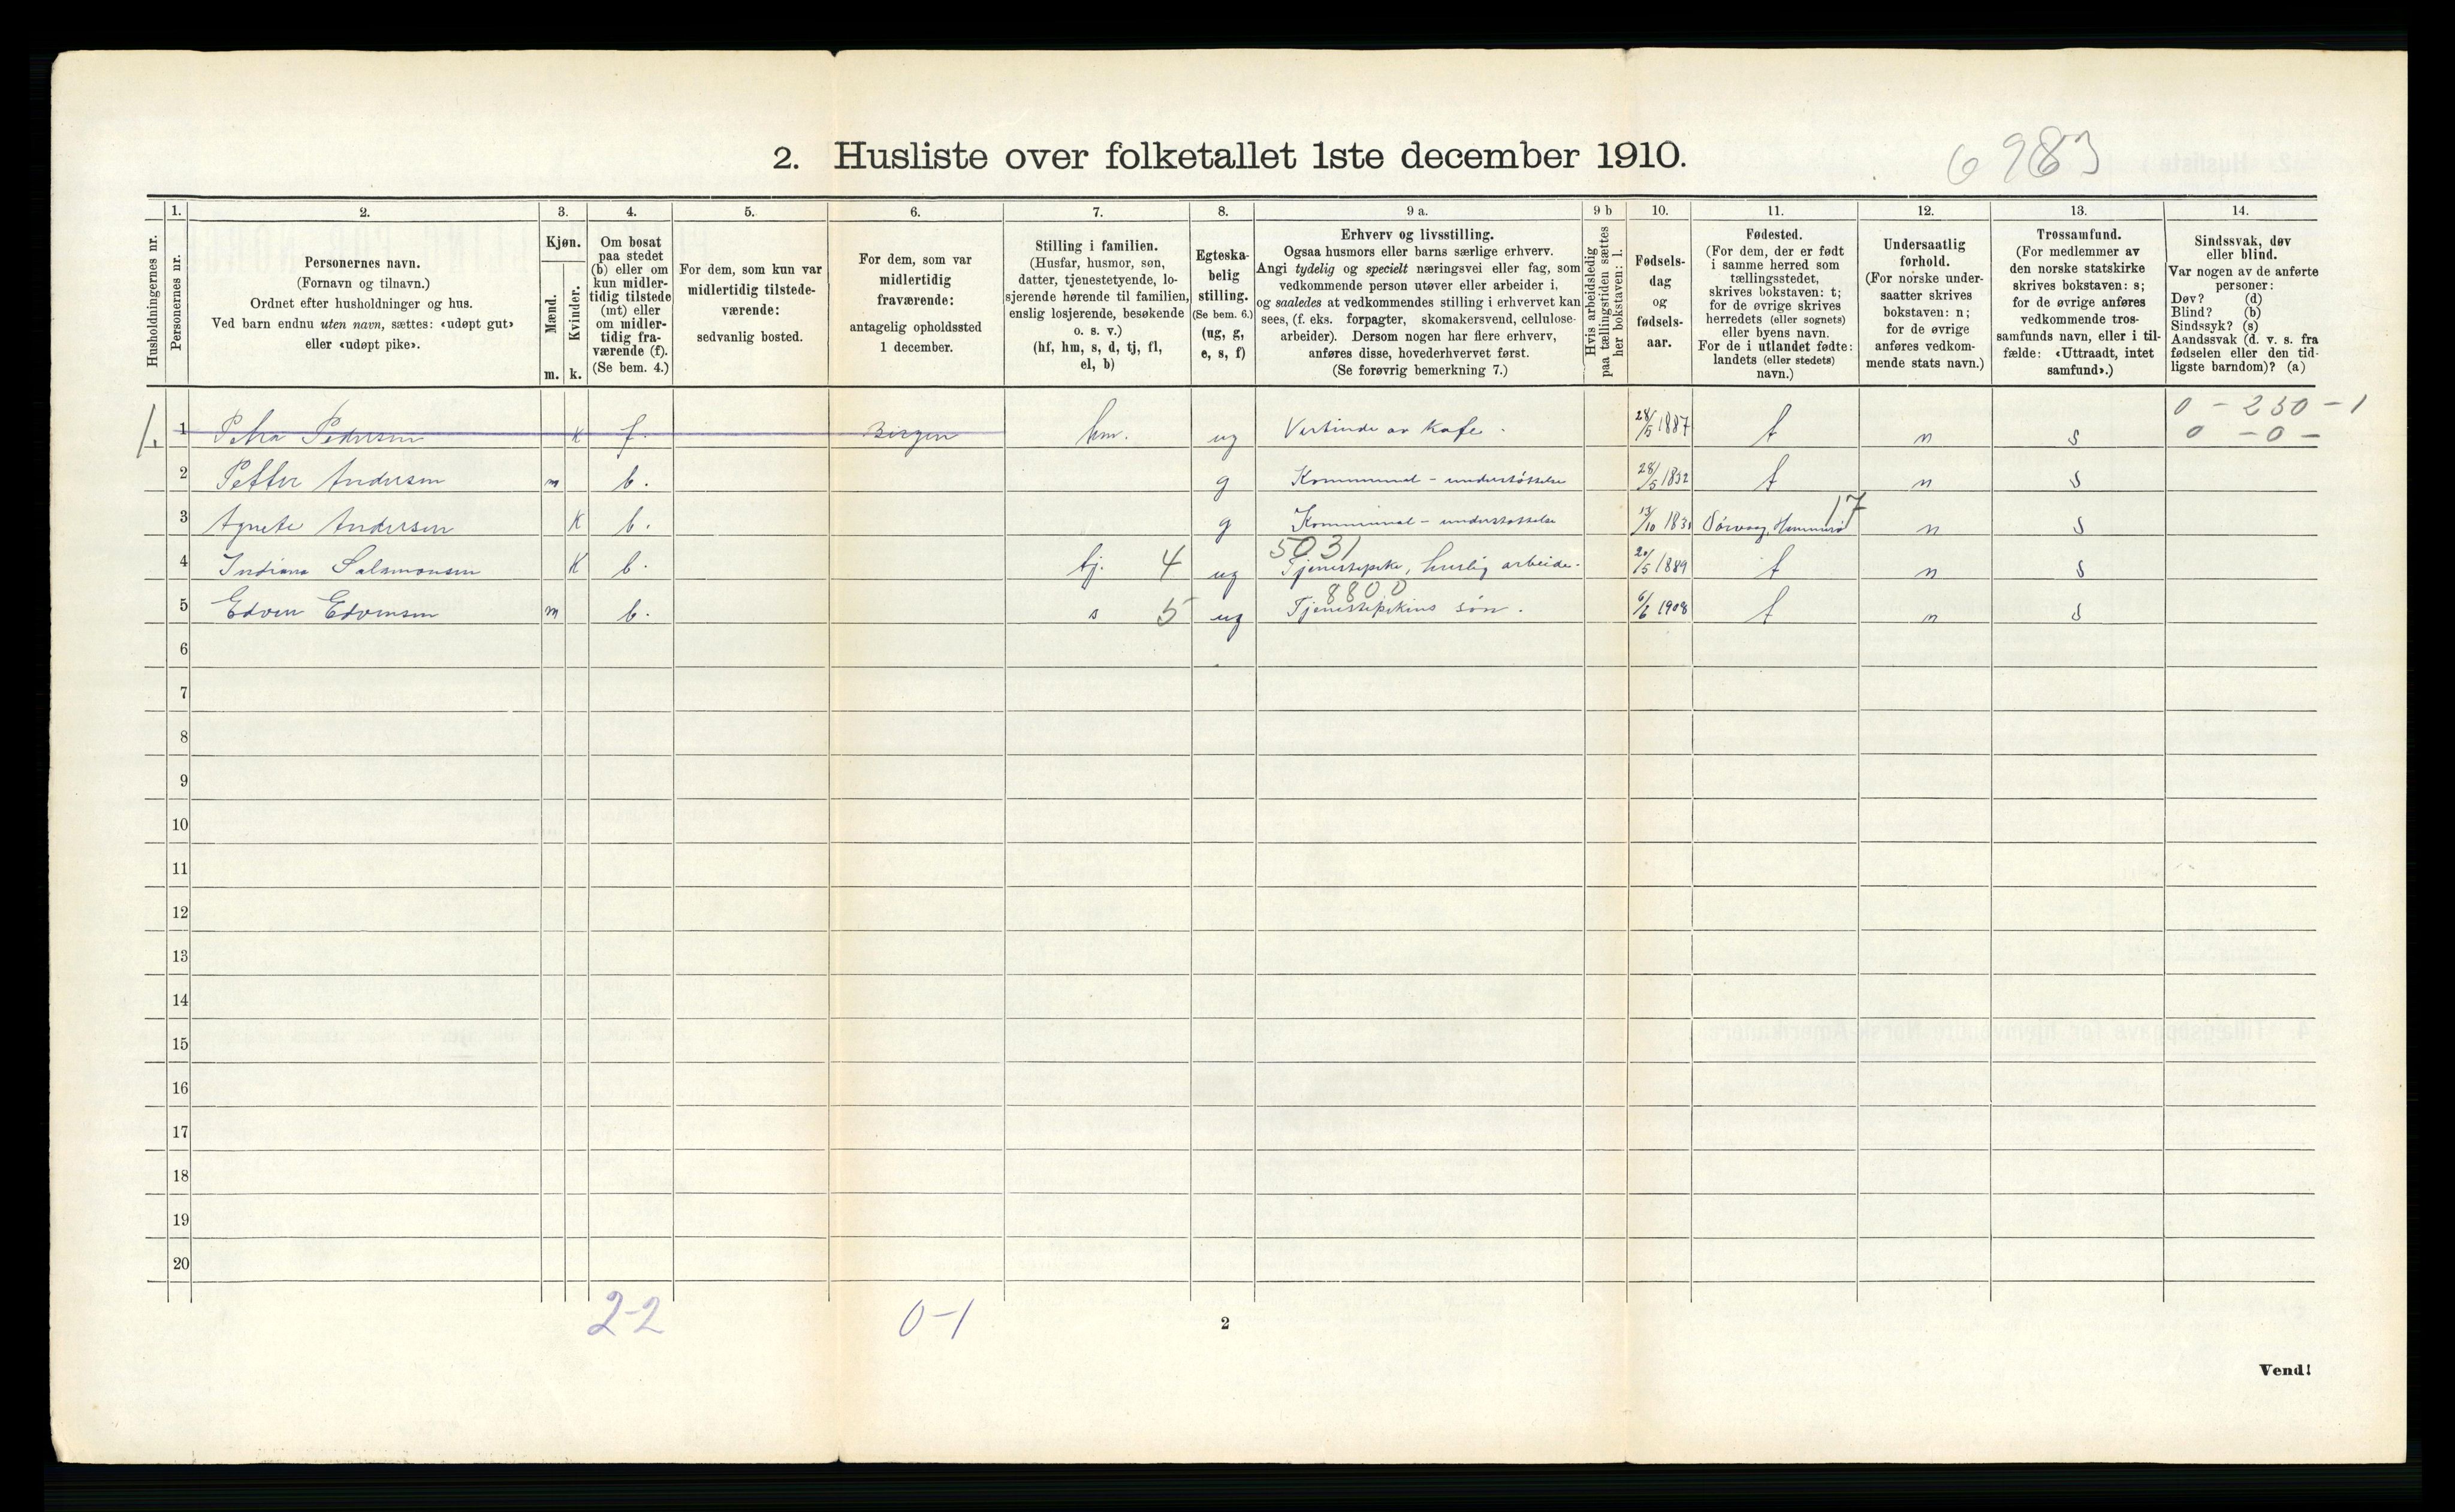 2. Husliste over folketallet 1ste december 1910.
6983
1. 2. 3. 4. 5. 6. 7. 8. 9 a. 9 b 10. 11. 12. 13. 14.
Husholdningernes nr.
Personernes nr.
Personernes navn.
(Fornavn og tilnavn.)
Ordnet efter husholdninger og hus.
Ved barn endnu uten navn, sættes: «udøpt gut»
eller «udøpt pike».
Kjøn.
Mænd.
Kvinder.
m. k.
Om bosat
paa stedet
(b) eller om
kun midler-
tidig tilstede
(mt) eller
om midler-
tidig fra-
værende (f).
(Se bem. 4.)
For dem, som kun var
midlertidig tilstede-
værende:
sedvanlig bosted.
For dem, som var
midlertidig
fraværende:
antagelig opholdssted
1 december.
Stilling i familien.
(Husfar, husmor, søn,
datter, tjenestetyende, lo-
sjerende hørende til familien,
enslig losjerende, besøkende
o. s. v.)
(hf, hm, s, d, tj, fl,
el, b)
Egteska-
belig
stilling.
(Se bem. 6.)
(ug, g,
e, s, f)
Erhverv og livsstilling.
Ogsaa husmors eller barns særlige erhverv.
Angi tydelig og specielt næringsvei eller fag, som
vedkommende person utøver eller arbeider i,
og saaledes at vedkommendes stilling i erhvervet kan
sees, (f. eks. forpagter, skomakersvend, cellulose-
arbeider). Dersom nogen har flere erhverv,
anføres disse, hovederhvervet først.
(Se forøvrig bemerkning 7.)
Hvis arbeidsledig
paa tællingstiden sættes
her bokstaven: l.
Fødsels-
dag
og
fødsels-
aar.
Fødested.
(For dem, der er født
i samme herred som
tællingsstedet,
skrives bokstaven: t;
for de øvrige skrives
herredets (eller sognets)
eller byens navn.
For de i utlandet fødte:
landets (eller stedets)
navn.)
Undersaatlig
forhold.
(For norske under-
saatter skrives
bokstaven: n;
for de øvrige
anføres vedkom-
mende stats navn.)
Trossamfund.
(For medlemmer av
den norske statskirke
skrives bokstaven: s;
for de øvrige anføres
vedkommende tros-
samfunds navn, eller i til-
fælde: «Uttraadt, intet
samfund».)
Sindssvak, døv
eller blind.
Var nogen av de anførte
personer:
Døv? (d)
Blind? (b)
Sindssyk? (s)
Aandssvak (d. v. s. fra
fødselen eller den tid-
ligste barndom)? (a)
0 - 230 - 1
1 Petra Pedersen k f. Bergen hm. ug Vertinde av Kafe. 28/5 1887 t n s 0 - 0 -
2 Petter Andersen m b. g Kommunal - understøttelse 28/5 1832 t n s
17
3 Agnete Andersen k b. g Kommunal - understøttelse 13/10 183 Hammerø n s
5031
4 Indiana Salamonsen k b. tj. 4 ug Tjenestepike, huslig arbeide. 20/5 1889 t n s
8800
5 Edvin Edvinsen m b. s 5 ug Tjenestepikens søn. 6/6 1908 t n s
6
7
8
9
10
11
12
13
14
15
16
17
18
19
20
2-2 0-1
2
Vend!